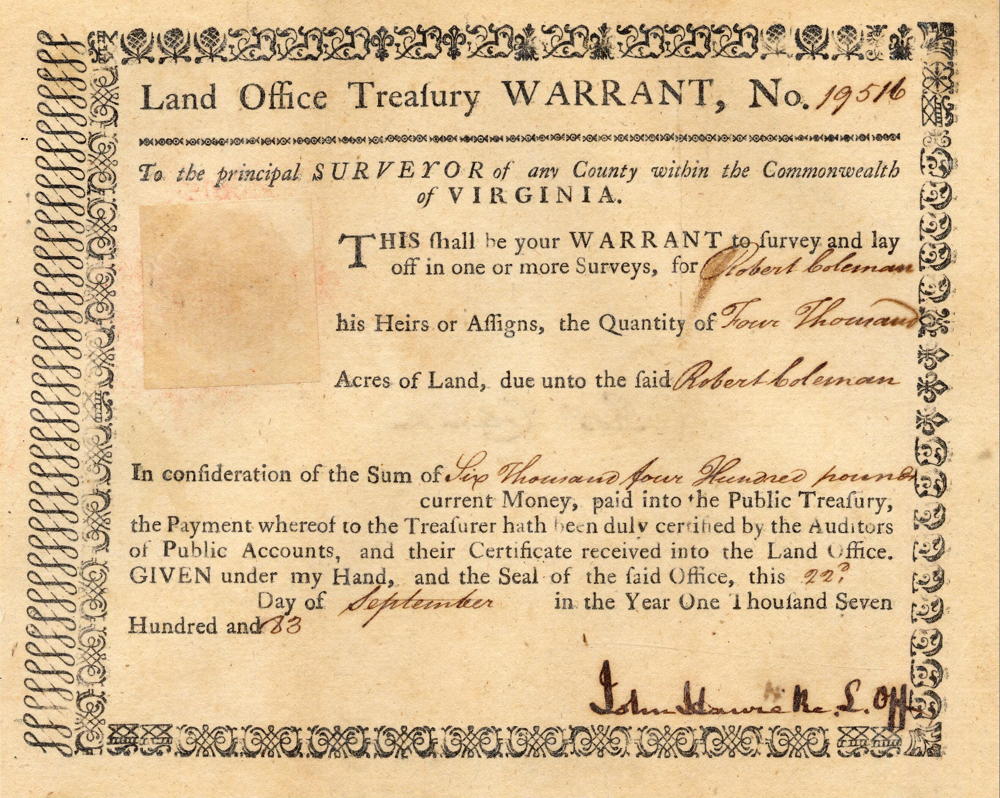 Land Office Treaſury WARRANT, No. 19516
To the principal SURVEYOR of any County within the Commonwealth
of VIRGINIA.
THIS ſhall be your WARRANT to ſurvey and lay
off in one or more Surveys, for Robert Coleman
his Heirs or Aſſigns, the Quantity of Four Thousand
Acres of Land, due unto the ſaid Robert Coleman
In conſideration of the Sum of Six Thousand four Hundred pounds
current Money, paid into the Public Treaſury,
the Payment whereof to the Treaſurer hath been duly certified by the Auditors
of Public Accounts, and their Certificate received into the Land Office.
GIVEN under my Hand, and the Seal of the ſaid Office, this 22d
Day of September in the Year One Thouſand Seven
Hundred and 83
John Harvie Re. L. Off